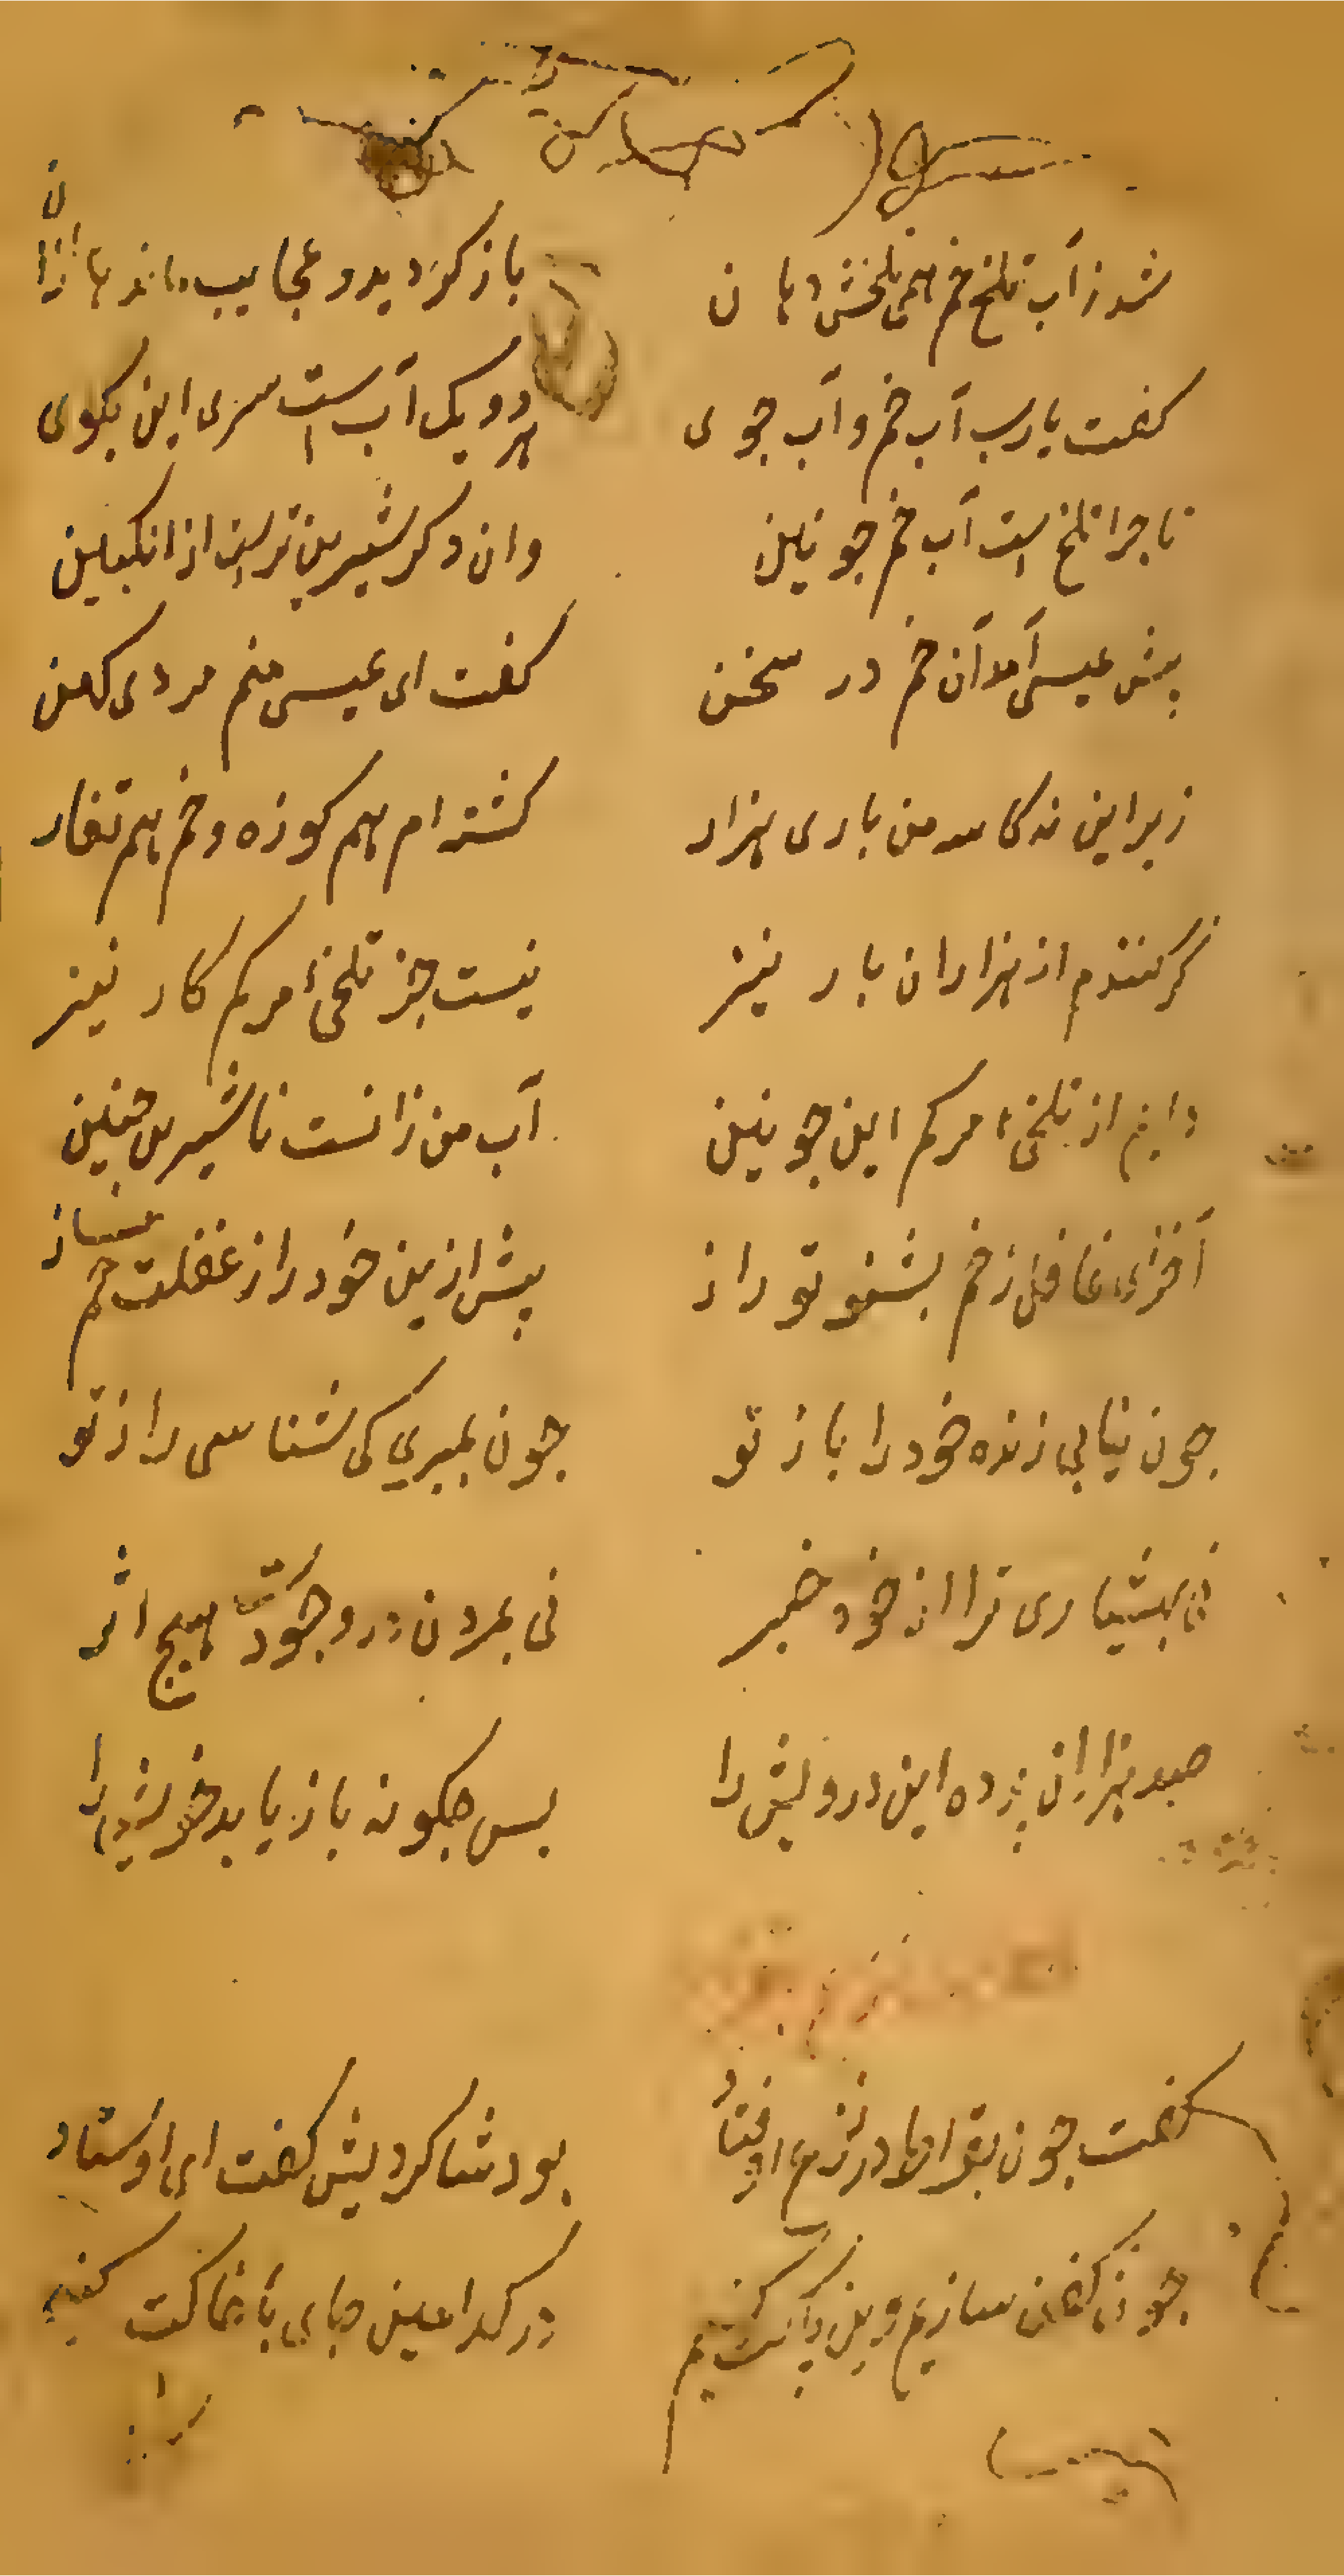 شد ز آب تلخ خم همی تلخش دهان باز کردید و عجایب ماند ازان
کفت یا رب آب خم و آب جوی هر دو یک آب است سری این بکوی
تا چرا تلخ است آب خم جونین وان دکر شیرین ترست از انکبین
پیش عیسی آمد آن خم در سخن کفت ای عیسی منم مردی کهن
زیر این نه کاسه من باری هزار کشته ام هم کوزه و خم هم تغار
کر کنندم از هزاران بار نیز نیست جز تلخیٔ مرکم کار نیز
دایم از تلخیٔ مرکم این جونین آب من زانست ناشیرین جنین
آخر ای غافل ز خم بشنو تو راز پیش ازین خود را ز غفلت خم مساز
جون نیابی زنده خود را باز تو جون بمیری کی شناسی راز تو
نی بهشیاری ترا از خود خبر نی بمردن در وجودت هیج اثر
صد هزاران پرده این درویش را بس جکونه باز یابد خویش را
کفت جون بقراط در نزع اوفتاد بود شاکردیش کفت ای اوستاد
جون کفن سازیم وین پاکت کنیم در کدامین جای با خاکت کنیم